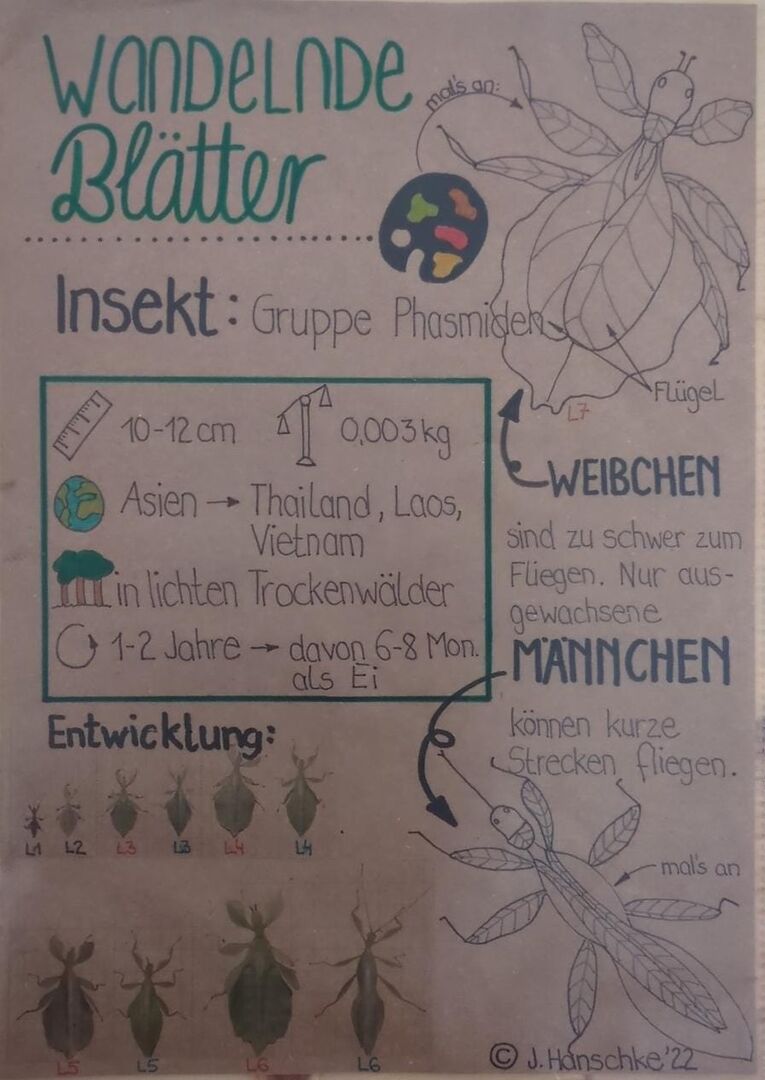 WANDELNDE
Blätter
mal's an:
Insekt: Gruppe Phasmiden
Flügel
L7
10-12 cm 0,003 kg
Asien → Thailand, Laos,
Vietnam
in lichten Trockenwälder
1-2 Jahre → davon 6-8 Mon.
als Ei
WEIBCHEN
sind zu schwer zum
Fliegen. Nur aus-
gewachsene
MÄNNCHEN
können kurze
Strecken fliegen.
mal's an
Entwicklung:
L1 L2 L3 L3 L4 L4
L5 L5 L6 L6
© J. Hanschke '22